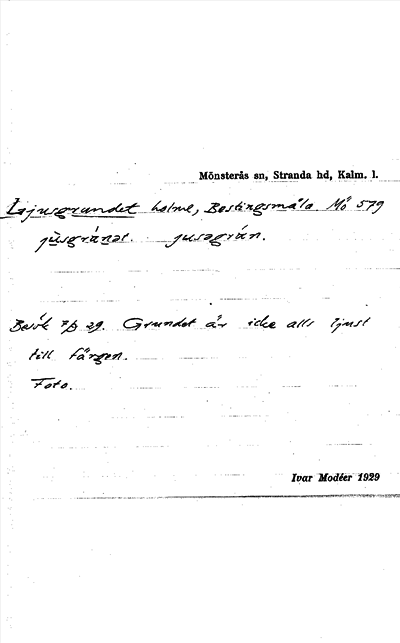 Mönsterås sn, Stranda hd, Kalm. l.
Ljusgrundet holme, Bestingsmåla. Mö 579
jùsgrànət. jusəgrán.
Besök 7/8 29. Grundet är icke alls ljust
till färgen.
Foto.
Ivar Modéer 1929